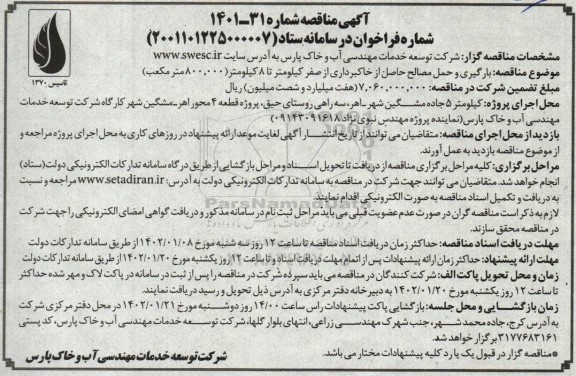 آگهی مناقصه شماره ۳۱-۱۴۰۱
شماره فراخوان در سامانه ستاد (۲۰۰۱۱۰۱۲۲۵۰۰۰۰۰۷)
تاسیس ۱۳۷۰
مشخصات مناقصه گزار: شرکت توسعه خدمات مهندسی آب و خاک پارس به آدرس سایت www.swesc.ir
موضوع مناقصه: بارگیری و حمل مصالح حاصل از خاکبرداری از صفر کیلومتر تا ۸ کیلومتر (۸۰۰,۰۰۰ متر مکعب)
مبلغ تضمین شرکت در مناقصه: ۷,۰۶۰,۰۰۰,۰۰۰ (هفت میلیارد و شصت میلیون) ریال
محل اجرای پروژه: کیلومتر ۵ جاده مشگین شهر-اهر، سه راهی روستای حیق، پروژه قطعه ۴ محور اهر-مشگین شهر کارگاه شرکت توسعه خدمات
مهندسی آب و خاک پارس (نماینده پروژه مهندس نبوی نژاد ۰۹۱۴۳۰۹۱۶۱۸)
بازدید از محل اجرای مناقصه: متقاضیان می توانند از تاریخ انتشار آگهی لغایت موعد ارائه پیشنهاد در روزهای کاری به محل اجرای پروژه مراجعه و
از موضوع مناقصه بازدید به عمل آورند.
مراحل برگزاری: کلیه مراحل برگزاری مناقصه از دریافت تا تحویل اسناد و مراحل بازگشایی از طریق درگاه سامانه تدارکات الکترونیکی دولت (ستاد)
انجام خواهد شد. متقاضیان می توانند جهت شرکت در مناقصه به سامانه تدارکات الکترونیکی دولت به آدرس: www.setadiran.ir مراجعه و نسبت
به دریافت و تکمیل اسناد مناقصه به صورت الکترونیکی اقدام نمایند.
لازم به ذکر است مناقصه گران در صورت عدم عضویت قبلی می باید مراحل ثبت نام در سامانه مذکور و دریافت گواهی امضای الکترونیکی را جهت شرکت
در مناقصه محقق سازند.
مهلت دریافت اسناد مناقصه: حداکثر زمان دریافت اسناد مناقصه تا ساعت ۱۲ روز سه شنبه مورخ ۱۴۰۲/۰۱/۰۸ از طریق سامانه تدارکات دولت
مهلت ارائه پیشنهاد: حداکثر زمان ارائه پیشنهادات پس از اتمام مهلت دریافت اسناد و تا ساعت ۱۲ روز یکشنبه مورخ ۱۴۰۲/۰۱/۲۰ از طریق سامانه تدارکات دولت
زمان و محل تحویل پاکت الف: شرکت کنندگان در مناقصه می باید سپرده شرکت در مناقصه را پس از ثبت در سامانه در پاکت لاک و مهر شده حداکثر
تا ساعت ۱۲ روز یکشنبه مورخ ۱۴۰۲/۰۱/۲۰ به دبیرخانه دفتر مرکزی به آدرس ذیل تحویل و رسید دریافت نمایند.
زمان بازگشایی و محل جلسه: بازگشایی پاکت پیشنهادات راس ساعت ۱۴/۰۰ روز دوشنبه مورخ ۱۴۰۲/۰۱/۲۱ در محل دفتر مرکزی شرکت
به آدرس کرج، جاده محمد شهر، جنب شهرک مهندسی زراعی، انتهای بلوار گلها، شرکت توسعه خدمات مهندسی آب و خاک پارس، کد پستی
۳۱۷۷۶۸۳۱۶۱ برگزار خواهد شد.
* مناقصه گزار در قبول یک یا رد کلیه پیشنهادات مختار می باشد.
شرکت توسعه خدمات مهندسی آب و خاک پارس